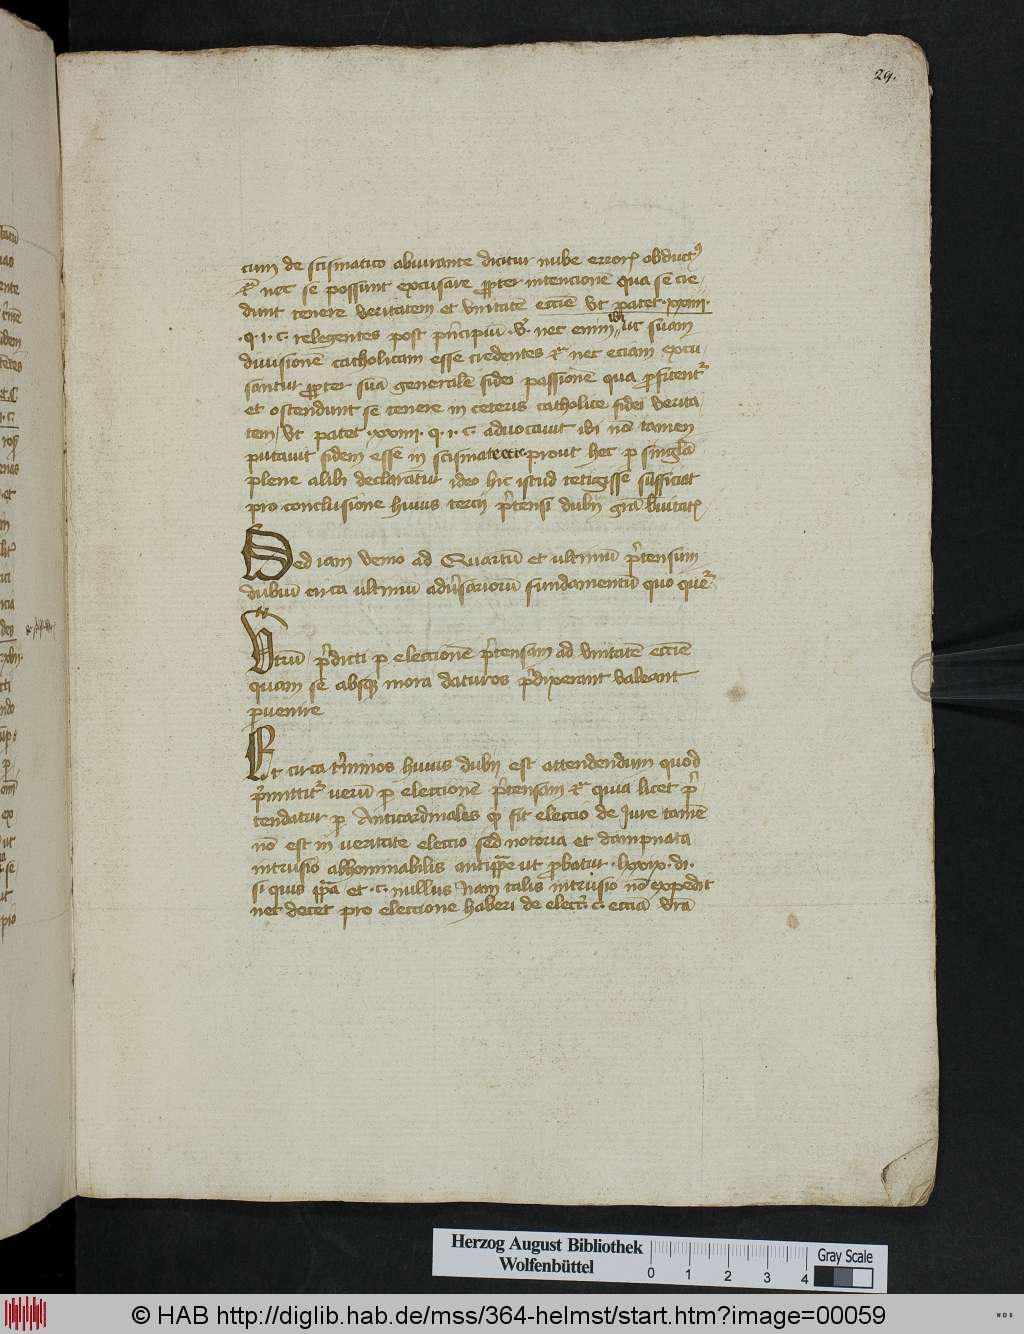 29.
cum de scismatico abiurante dicitur nube erroris obductus
Et nec se possunt excusare propter intencionem qua se cre-
dunt tenere veritatem et vnitatem eccie vt patet xxiiii.
.q. i. c. relegentes post principium .v. nec enim ibi ut suam
diuisionem catholicam esse credentes Et nec eciam excu-
santur propter suam generalem fidei passionem qua profitentur
et ostendunt se tenere in ceteris catholice fidei verita-
tem vt patet xxiiii. q. i. c. aduocauit ibi non tamen
putauit fidem esse in scismate prout hec per singula
plene alibi declarantur ideo hic istud tetigisse sufficiat
pro conclusione huius tercii pretensi dubii gratia breuitatis
Sed iam venio ad Quartum et ultimum pretensum
dubium circa ultimum aduersariorum fundamentum quo queritur
Vtrum predicti per eleccionem pretensam ad vnitatem eccie
quam se absque mora daturos predixerant valeant
peruenire
Et circa terminos huius dubii est attendendum quod
premittitur verum per eleccionem pretensam Et quia licet pre-
tendatur per Anticardinales quod fit eleccio de Iure tamen
non est in veritate eleccio sed notoria et dampnata
intrusio abhominabilis antipape ut probatur lxxix. di.
si quis papa et .c. nullus Nam talis intrusio non expedit
nec decet pro eleccione haberi de elect. c. eccia vra
Herzog August Bibliothek
Wolfenbüttel
0 1 2 3 4
Gray Scale
© HAB http://diglib.hab.de/mss/364-helmst/start.htm?image=00059